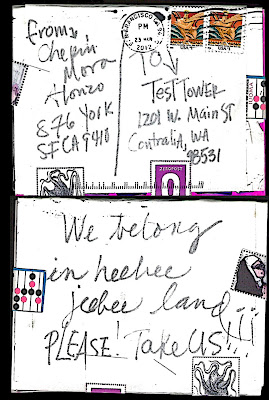 From:
Chepin
Mora
Alonzo
876 York
SF CA 9410
SAN FRANCISCO
PM
2012
TO
TEST TOWER
1201 W. Main ST
Centralia, WA
98531
ZEROPOST
0
We belong
in heebee
jeebee land
PLEASE! Take US!!!